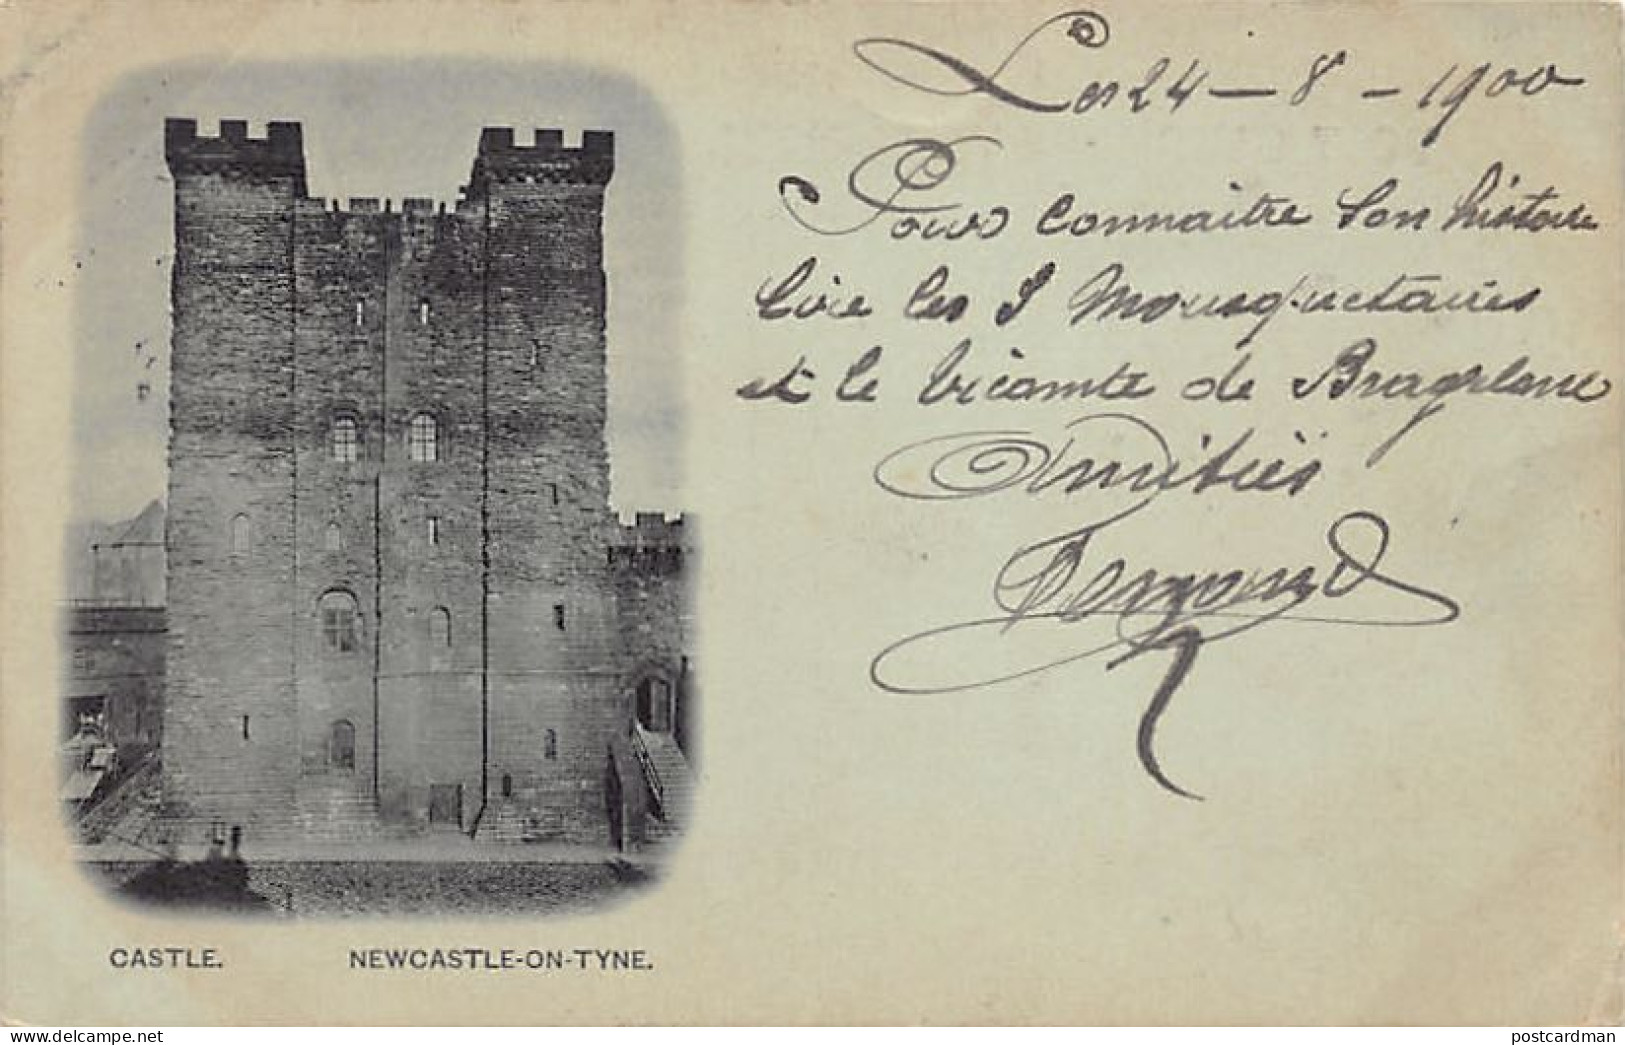 Les 24 - 8 - 1900
Pour connaitre son histoire
lire les 3 Mousquetaires
et le Vicomte de Bragelone
Amitiés
CASTLE. NEWCASTLE-ON-TYNE.
www.delcampe.net
postcardman